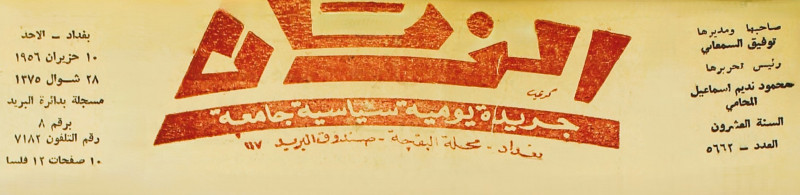 صاحبها ومديرها
توفيق السمعاني
رئيس تحريرها
محمود نديم اسماعيل
المحامي
السنة العشرون
العدد - ٥٦٦٢
الزمان
جريدة يومية سياسية جامعة
بغداد - محلة البقجة - صندوق البريد ١١٧
بغداد - الاحد
١٠ حزيران ١٩٥٦
٢٨ شوال ١٣٧٥
مسجلة بدائرة البريد
برقم ٨
رقم التلفون ٧١٨٢
١٠ صفحات ١٢ فلسا